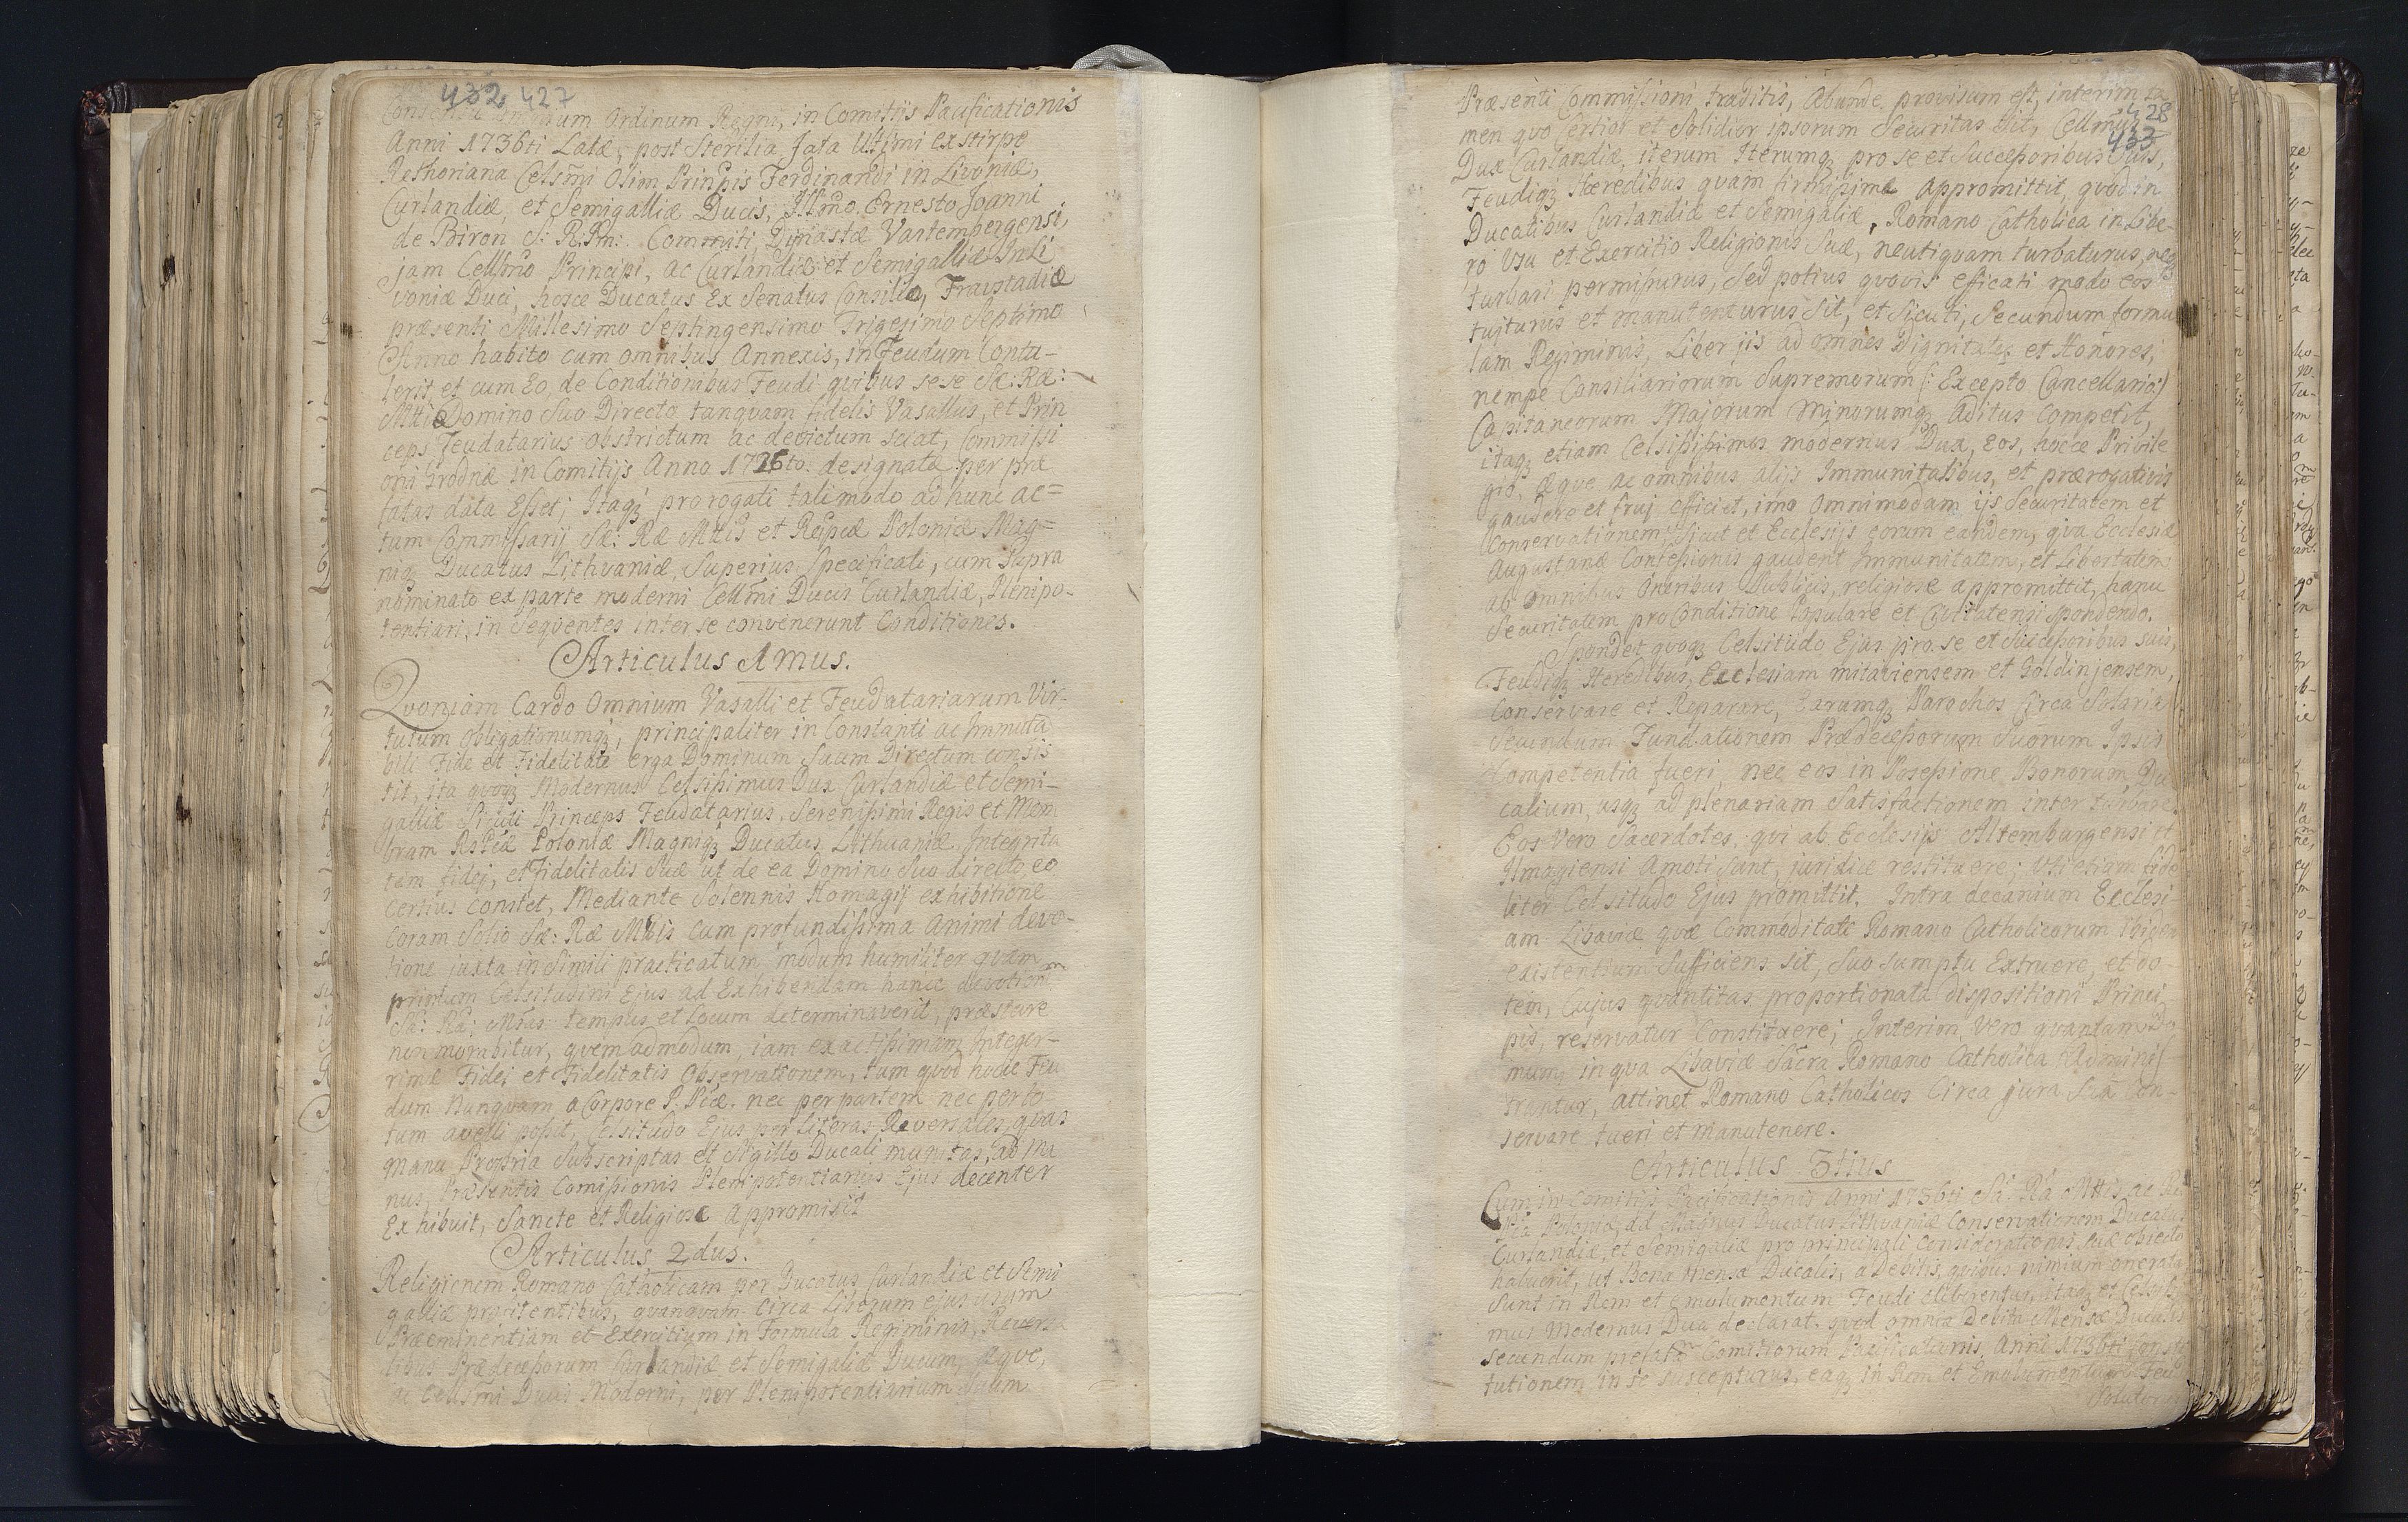 432 427
Ordinum Regni, in Comitijs Pacificationis
Anni 1736ti Latæ, post Sterilia fata Ultimi ex stirpe
Kethoriana Celsmi Olim Prinpis Ferdinandi in Livoniæ,
Curlandiæ, et Semigalliæ Ducis, Illmo Ernesto Joanni
de Biron S: R: Im: Commiti, Dinastæ Vartembergensi,
jam Cellmo Principi, ac Curlandiæ et Semigalliæ In Li
voniæ Duci, hosce Ducatus Ex Senatus Consilio, Fraustadiæ
præsenti Millesimo Septingensimo Trigesimo Septimo
Anno habito cum omnibus Annexis, in Feudum Contu-
lerit, et cum Eo, de Conditionibus Feudi quibus sese Sæ: Ræ:
Mtti Domino Suo Directo tanquam fidelis Vasallus, et Prin
ceps Feudatarius obstrictum ac devictum sciat, Commissi
oni Grodnæ in Comitijs Anno 1726to designatæ per præ
data Esset; Itaq prorogati tali modo ad hunc ac=
tum Commissarij Sæ: Ræ Mttis et Reipcæ Poloniæ Mag=
niq Ducatus Lithvaniæ, Superius Specificati, cum Supra
nominato ex parte moderni Cellmi Ducis Curlandiæ, Plenipo-
tentiari, in Seqventes inter se convenerunt Conditiones.
Articulus 1mus.
Qvoniam Cardo Omnium Vasalli et Feudatariarum Vir-
tutum Obligationumq, principaliter in Constanti ac Immuta
bili Fide et Fidelitate erga Dominum Suum Directum consis
tit, ita qvoq Modernus Celsissimus Dux Curlandiæ et Semi-
galliæ Sicuti Princeps Feudatarius Serenissimi Regis et Mem
brum Rptcæ Poloniæ Magniq Ducatus Lithuaniæ Integrita
tem fidei, et Fidelitatis Suæ ut de ea Domino Suo directo eo
certius constet, Mediante Solennis Homagij exhibitione
Coram Solio Sæ: Ræ Mttis cum profundissima Animi devo-
tione juxta in Simili practicatum modum humiliter qvam
primum Celsitudini Ejus ad Exhibendam hanc devotionem
Sa: Ra: Mtas tempus et locum determinaverit, præstare
non morabitur, qvem admodum, iam exactissimam Integer-
rimæ Fidei et Fidelitatis Observationem, tum qvod hocce Feu
dum Nunquam a Corpore R: Picæ. nec per partem nec per to-
tum avelli possit, Celsitudo Ejus per Literas Reversales, qvas
Manu Propria Subscriptas et Sigillo Ducali munitas, ad Ma
nus Præsentis Comissionis Plenipotentiarius Ejus decenter
Exhibuit, Sancte et Religiose Appromisit
Articulus 2dus.
Religionem Romano Catholicam per Ducatus Curlandiæ et Semi
galliæ profitentibus, qvanqvam Circa Liberum ejus usum
Præeminentiam et Exercitium in Formula Regiminis, Reversa
libus Prædecessorum Curlandiæ et Semigaliæ Ducum, æqve,
ac Cellsmi Ducis Moderni, per Plenipotentiarium Suum
Præsenti Commissioni traditis, Abunde provisum est, interim ta
428
men qvo Certior et Solidior ipsorum Securitas sit, Cellmus
433
Dux Curlandiæ iterum Iterumq pro se et Successoribus Suis,
Feudiq Hæredibus qvam firmissime Appromittit, qvod in
Ducatibus Curlandiæ et Semigaliæ, Romano Catholica in Libe-
ro Usu et Exercitio Religionis Suæ, neutiquam turbaturus, neq
turbari permissurus, Sed potius qvovis efficati modo eos
tujturus et manutenturus Sit, et Sicuti, Secundum formu
lam Regiminis, Liber ijs ad omnes Dignitates et Honores,
nempe Consiliariorum Supremorum (: Excepto Cancellario:)
Capitaneorum Majorum Minorumq Aditus Competit,
itaq etiam Celsissimus modernus Dux, Eos, hocce Privile
gio, æqve ac omnibus alijs Immunitatibus, et prærogativis
gaudere et frui efficiet, imo Omnimodam ijs Securitatem et
Conservationem, Sicut et Ecclesijs eorum eandem, qva Ecclesiæ
Augustanæ Confessionis gaudent Immunitatem, et Libertatem
ab Omnibus Oneribus Publicis, religiose appromittit, hanc
Securitatem pro Conditione Spondendo.
Spondet qvoq Celsitudo Ejus pro se et Successoribus suis,
Feudiq Heredibus, Ecclesiam mitaviensem et Goldinjensem,
Conservare et Reparare, Earumq Parochos circa Solaria
Secundum Fundationem Prædecessorum Suorum Ipsis
Competentia tueri, nec eos in Possessione Bonorum Du
calium, usq ad plenariam Satisfactionem inter turbare.
Eos Vero Sacerdotes, qvi ab Ecclesijs Altemburgensi et
Ilmagiensi Amoti Sunt, juridice restituere; Uti etiam fide
liter Celsitudo Ejus promittit, Intra decenium Ecclesi-
am Libaviæ qvæ Commoditate Romano Catholicorum ibidem
existentium Sufficiens sit, Suo sumptu Extruere, et do-
tem, Cujus qvantitas proportionata dispositioni Princi-
pis, reservatur Constituere; Interim Vero qvantam Do
mum, in qva Libaviæ Sacra Romano Catholica Adminis
trantur, attinet Romano Catholicos Circa jura Sua Con-
servare tueri et manutenere.
Articulus 3tius
Cum in Comitijs Pacificationis Anni 1736ti Sa: Ra Mttis ac Re
Polonia, ad Magnus Ducatus Lithuaniæ Conservationem Ducatus
Curlandiæ, et Semigaliæ pro principali Considerationis Suæ objecto
habuerit, ut Bona Mensæ Ducalis, a Debitis, qvibus nimium onerata
Sunt in Rem et emolumentum Feudi eliberentur, itaq et Celsissi
mus Modernus Dux declarat, qvod omnia Debita Mensæ Ducalis
secundum prefatam Comitiorum Pacificationis, Anni 1736ti Consti
tutionem in se suscepturus, eaq in Rem et Emolumentum Feudi